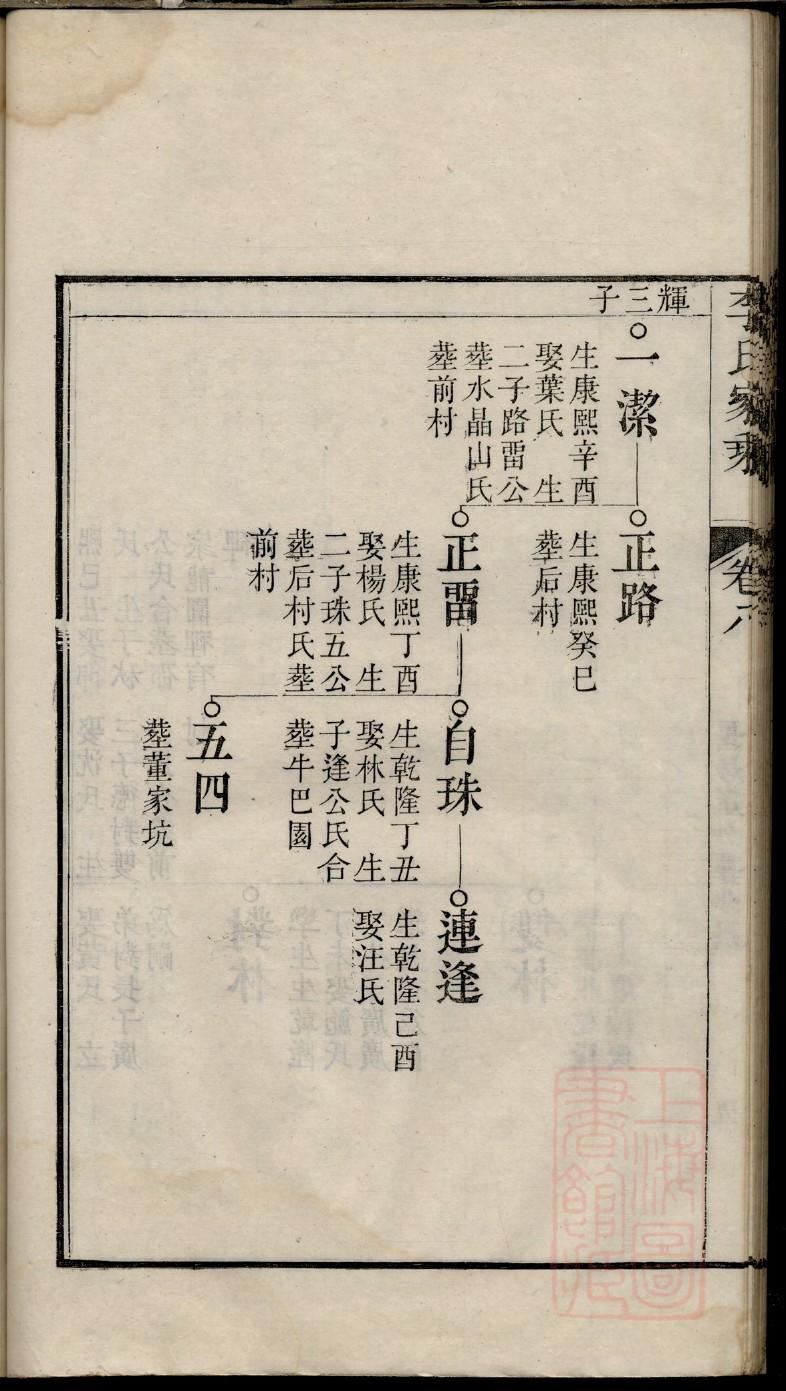 李氏家乘
卷八
輝三子
一潔
生康熙辛酉
娶葉氏 生
二子路畱公
塟水晶山氏
塟前村
正路
生康熙癸巳
塟后村
正畱
生康熙丁酉
娶楊氏 生
二子珠五公
塟后村氏塟
前村
自珠
生乾隆丁丑
娶林氏 生
子逢公氏合
塟牛巴園
五四
塟董家坑
連逢
生乾隆己酉
娶汪氏
上海圖
書館藏